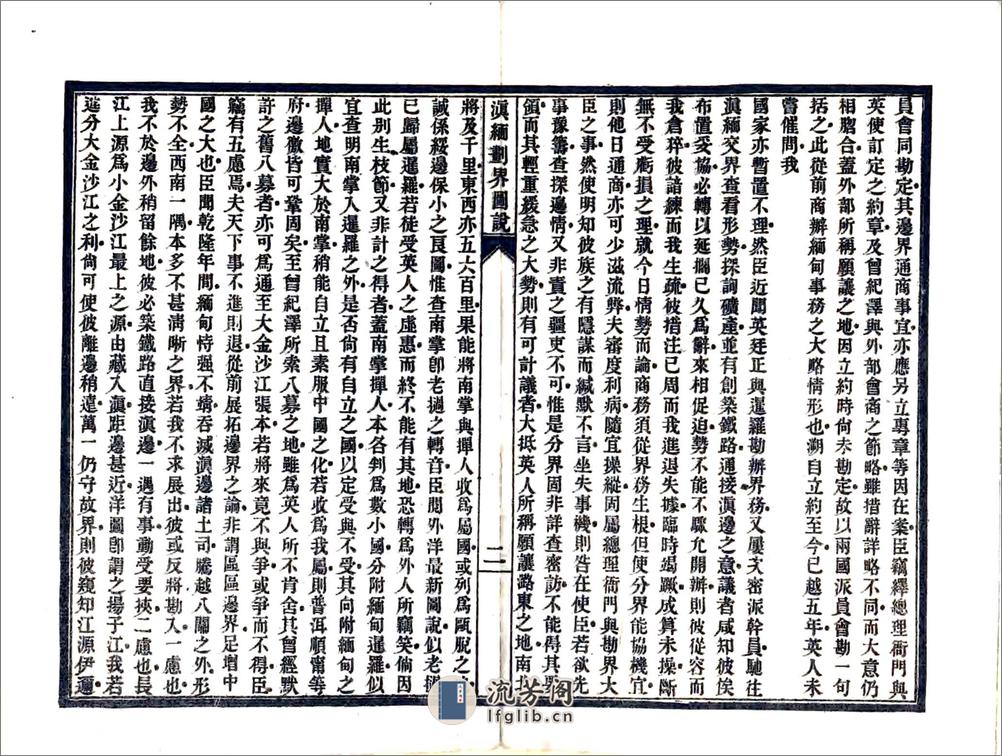 員會同勘定其邊界通商事宜亦應另立專章等因在案臣竊繹總理衙門與
英使訂定之約章及曾紀澤與外部會商之節略雖措辭詳略不同而大意仍
相脗合蓋外部所稱願讓之地因立約時尚未勘定故以兩國派員會勘一句
括之此從前商辦緬甸事務之大略情形也溯自立約至今已越五年英人未
嘗催問我
國家亦暫置不理然臣近聞英廷正與暹羅勘辦界務又屢次密派幹員馳往
滇緬交界查看形勢探詢礦產並有創築鐵路通接滇邊之意議者咸知彼俟
布置妥協必轉以延擱已久為辭來相促迫勢不能不驟允開辦則彼從容而
我倉猝彼諳練而我生疏彼措注已周而我進退失據臨時竭蹶成算未操斷
無不受虧損之理就今日情勢而論商務須從界務生根但使分界能協機宜
則他日通商亦可少滋流弊夫審度利病隨宜操縱固屬總理衙門與勘界大
臣之事然使明知彼族之有隱謀而緘默不言坐失事機則咎在使臣若欲先
事豫籌查探邊情又非責之疆吏不可惟是分界固非詳查密訪不能得其要
領而其輕重緩急之大勢則有可計議者大抵英人所稱願讓潞東之地南北
滇緬劃界圖說
二
將及千里東西亦五六百里果能將南掌與撣人收為屬國或列為甌脫之
誠係綏邊保小之良圖惟查南掌卽老撾之轉音臣閱外洋最新圖說似老撾
已歸屬暹羅若徒受英人之虛惠而終不能有其地恐轉為外人所竊笑倘因
此別生枝節又非計之得者蓋南掌撣人本各判為數小國分附緬甸暹羅似
宜查明南掌入暹羅之外是否尚有自立之國以定受與不受其向附緬甸之
撣人地實大於南掌稍能自立且素服中國之化若收為我屬則普洱順甯等
府邊徼皆可鞏固矣至曾紀澤所索八募之地雖為英人所不肯舍其曾經默
許之舊八募者亦可為通至大金沙江張本若將來竟不與爭或爭而不得臣
竊有五慮焉夫天下事不進則退從前展拓邊界之論非謂區區邊界足增中
國之大也臣聞乾隆年間緬甸恃强不靖吞滅滇邊諸土司騰越八關之外形
勢不全西南一隅本多不甚清晰之界若我不求展出彼或反將勘入一慮也
我不於邊外稍留餘地彼必築鐵路直接滇邊一遇有事動受要挾二慮也長
江上源為小金沙江最上之源由藏入滇距邊甚近洋圖卽謂之揚子江我若
進分大金沙江之利尚可使彼離邊稍遠萬一仍守故界則彼窺知江源伊邇
流芳閣
lfglib.cn